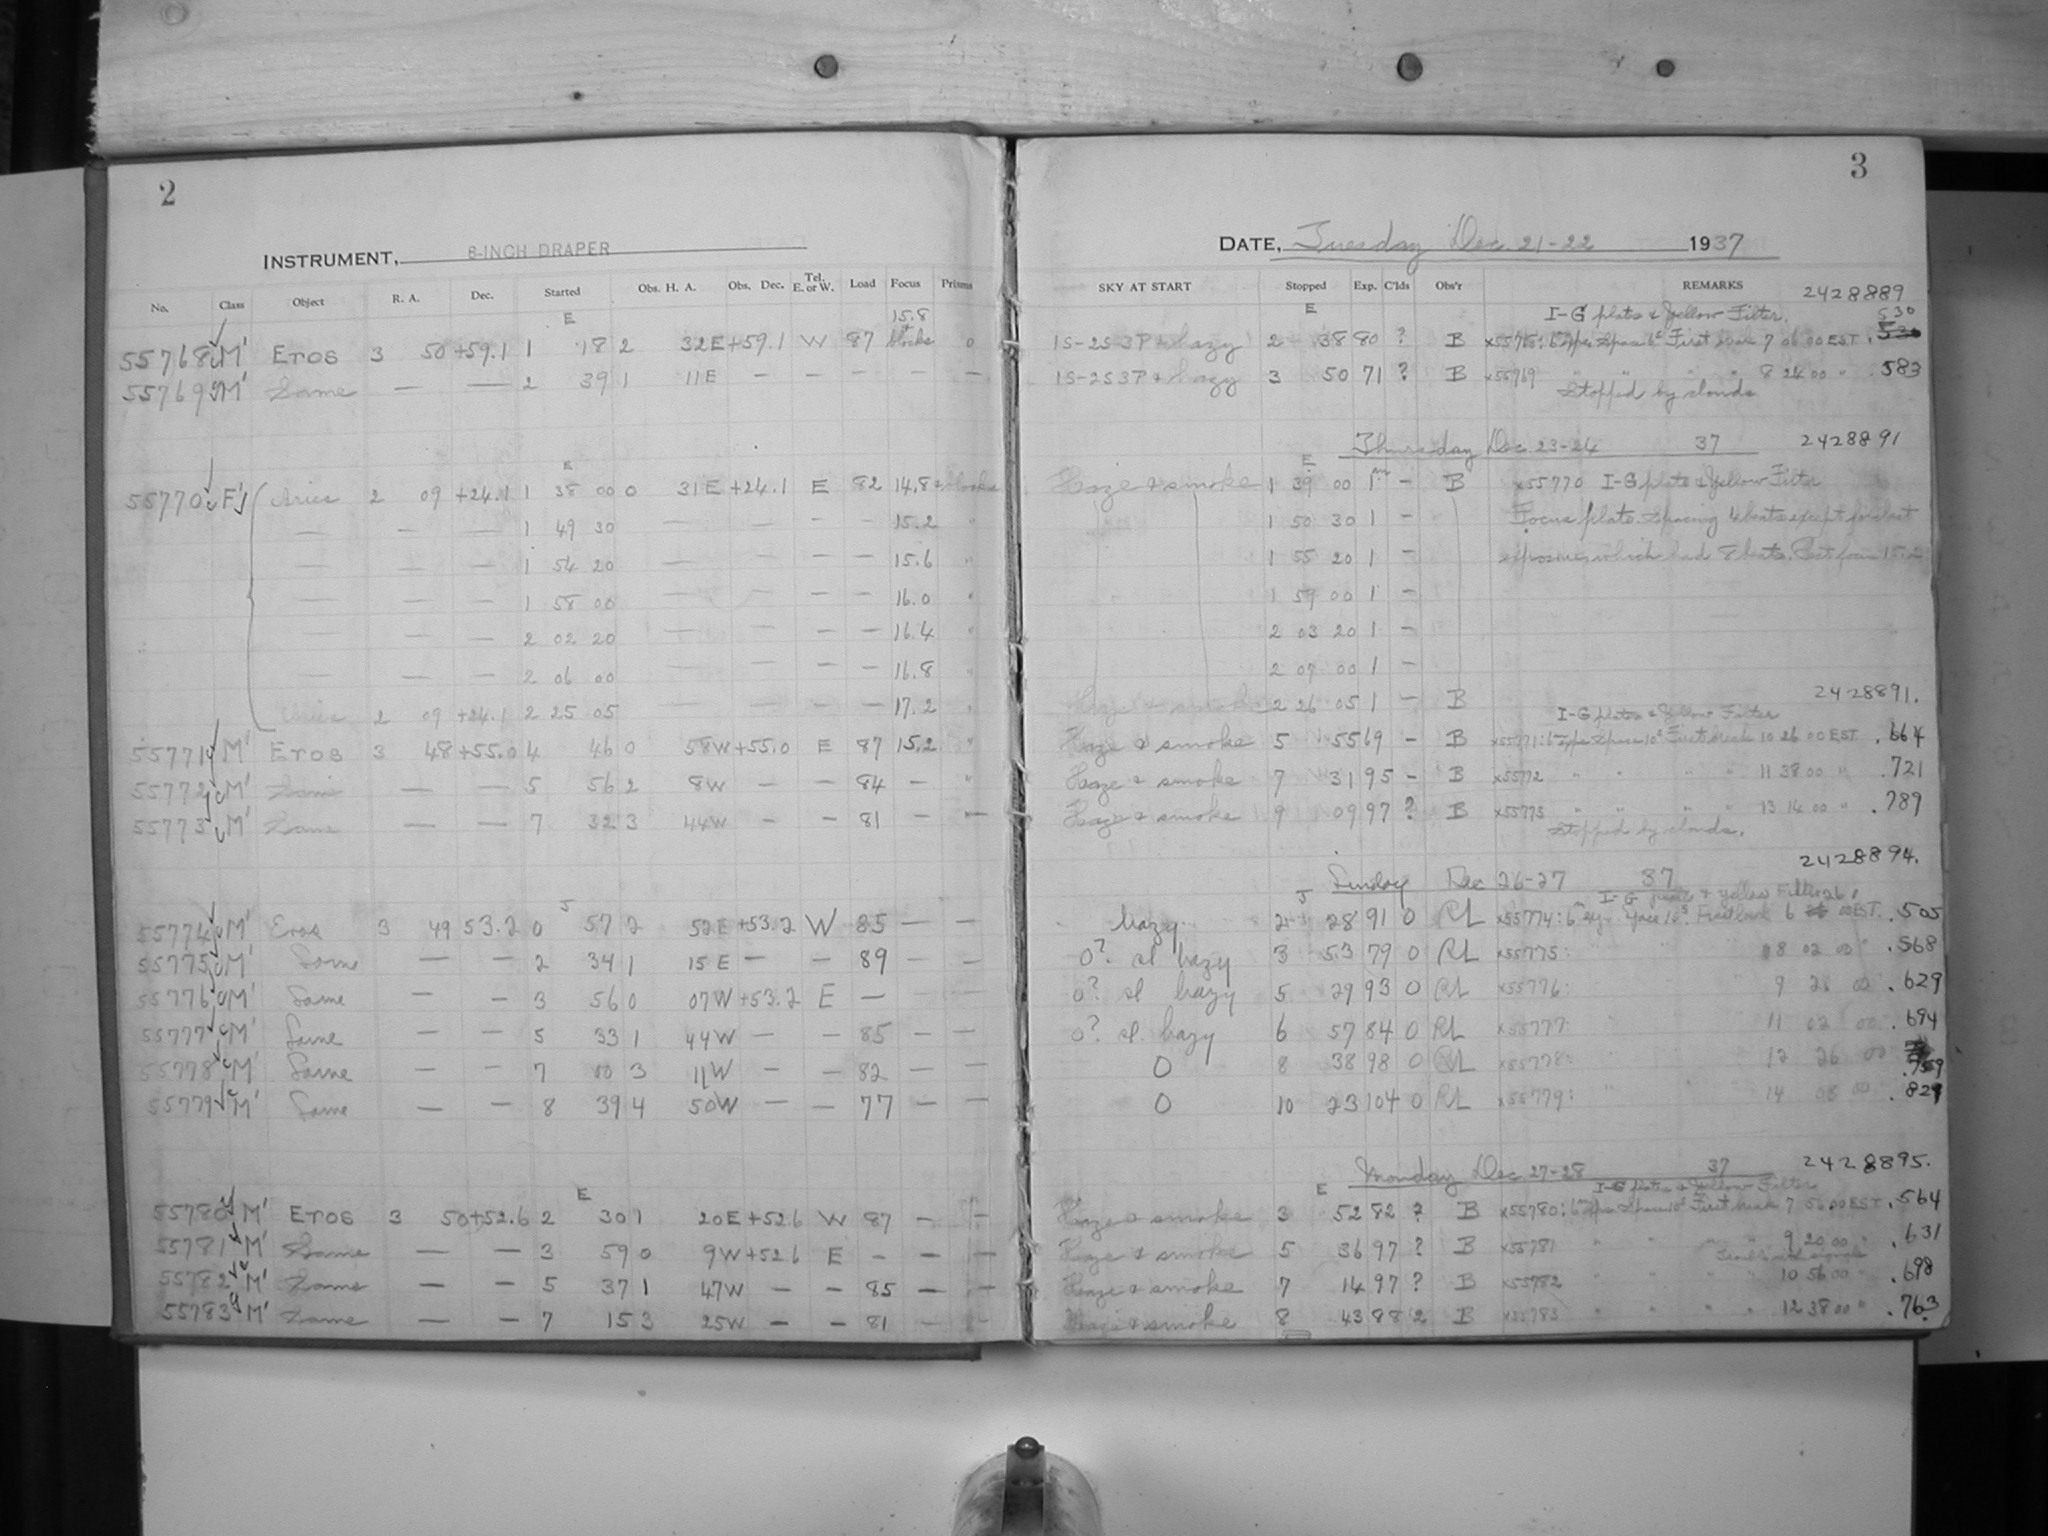 2
INSTRUMENT, 8-INCH DRAPER
No. Class Object R. A. Dec. Started Obs. H. A. Obs. Dec. Tel. E. or W. Load Focus Prisms
E 15.8 +
55768 M' Eros 3 50 +59.1 1 18 2 32E +59.1 W 87 blocks 0
55769 M' Same — — 2 39 1 11E — — — — —
E
55770 F' Aries 2 09 +24.1 1 38 00 0 31E +24.1 E 82 14.8 + blocks
— — — 1 49 30 — — — — 15.2 "
— — — 1 54 20 — — — — 15.6 "
— — — 1 58 00 — — — — 16.0 "
— — — 2 02 20 — — — — 16.4 "
— — — 2 06 00 — — — — 16.8 "
Aries 2 09 +24.1 2 25 05 — — — — 17.2 "
55771 M' Eros 3 48 +55.0 4 46 0 58W +55.0 E 87 15.2 "
55772 M' Same — — 5 56 2 8W — — 84 — "
55773 M' Same — — 7 32 3 44W — — 81 — —
J
55774 M' Eros 3 49 53.2 0 57 2 52E +53.2 W 85 — —
55775 M' Same — — 2 34 1 15E — — 89 — —
55776 M' Same — — 3 56 0 07W +53.2 E — — —
55777 M' Same — — 5 33 1 44W — — 85 — —
55778 M' Same — — 7 00 3 11W — — 82 — —
55779 M' Same — — 8 39 4 50W — — 77 — —
E
55780 M' Eros 3 50 +52.6 2 30 1 20E +52.6 W 87 — —
55781 M' Same — — 3 59 0 9W +52.6 E — — —
55782 M' Same — — 5 37 1 47W — — 85 — —
55783 M' Same — — 7 15 3 25W — — 81 — —
3
DATE, Tuesday Dec. 21-22 1937
SKY AT START Stopped Exp. C'lds Obs'r REMARKS 2428889
E I-G plates & Yellow Filter. 530
1S-2S-3P + hazy 2 38 80 ? B x55768: First break 7 06 00 EST
1S-2S3P + hazy 3 50 71 ? B x55769 " " " " 8 24 00 " .583
Stopped by clouds
Thursday Dec 23-24 37 2428891
E
Haze & smoke 1 39 00 1m — B x55770 I-G plate & Yellow Filter
1 50 30 1 — Focus plate. Spacing 4 beats except for last
1 55 20 1 — exposure, which had 8 beats. Best focus 15.2
1 59 00 1 —
2 03 20 1 —
2 07 00 1 —
2428891.
Haze & smoke 2 26 05 1 — B
I-G plates & Yellow Filter
Haze & smoke 5 55 69 — B x55771: First break 10 26 00 EST .664
Haze & smoke 7 31 95 — B x55772 " " " " 11 38 00 " .721
Haze & smoke 9 09 97 ? B x55773 " " " " 13 14 00 " .789
Stopped by clouds.
2428894.
Sunday Dec 26-27 37
J I-G plates & yellow Filter
hazy 2 28 91 0 RL x55774: First break 6 26 00 EST. .505
0? sl hazy 3 53 79 0 RL x55775: 8 02 00 " .568
0? sl hazy 5 29 93 0 RL x55776: 9 26 00 .629
0? sl. hazy 6 57 84 0 RL x55777: 11 02 00 .694
0 8 38 98 0 RL x55778: 12 26 00 .759
0 10 23 104 0 RL x55779: 14 08 00 .829
Monday Dec. 27-28 37 2428895.
E I-G plates & Yellow Filter
Haze & smoke 3 52 82 ? B x55780: First break 7 56 00 EST .564
Haze & smoke 5 36 97 ? B x55781 " " " 9 20 00 " .631
Haze & smoke 7 14 97 ? B x55782 " " " " 10 56 00 " .698
Haze & smoke 8 43 88 2 B x55783 " " " " 12 38 00 " .763